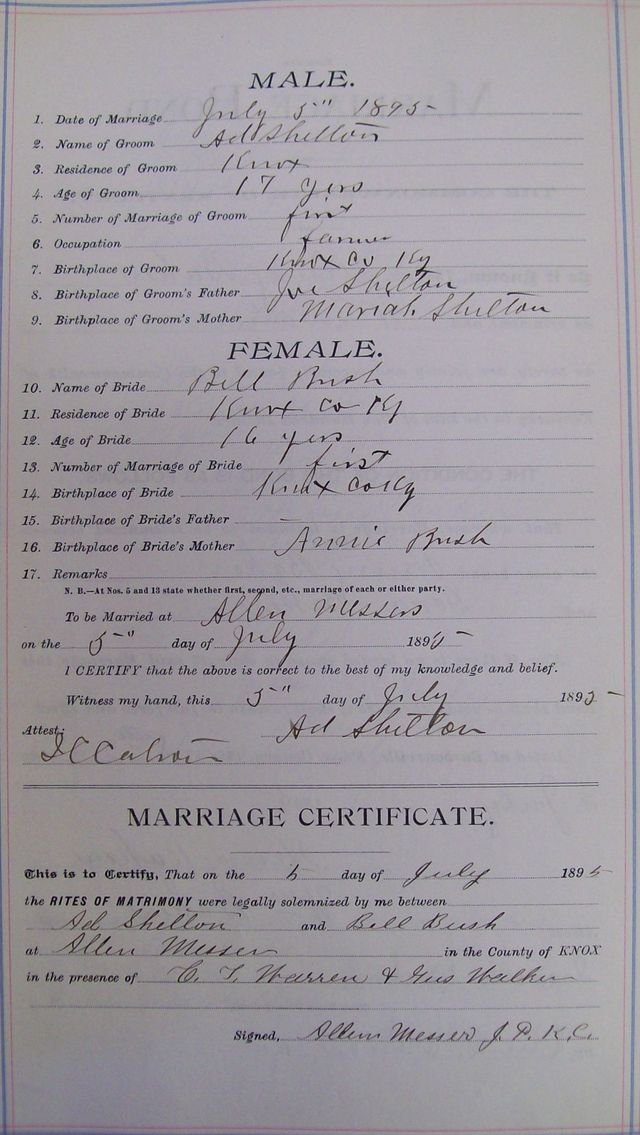 MALE.
1. Date of Marriage July 5" 1895
2. Name of Groom Ad Shelton
3. Residence of Groom Knox
4. Age of Groom 17 yers
5. Number of Marriage of Groom first
6. Occupation farmer
7. Birthplace of Groom Knox Co Ky
8. Birthplace of Groom's Father Joe Shelton
9. Birthplace of Groom's Mother Mariah Shelton
FEMALE.
10. Name of Bride Bell Bush
11. Residence of Bride Knox Co Ky
12. Age of Bride 16 yers
13. Number of Marriage of Bride first
14. Birthplace of Bride Knox Co Ky
15. Birthplace of Bride's Father
16. Birthplace of Bride's Mother Annie Bush
17. Remarks
N. B.—At Nos. 5 and 13 state whether first, second, etc., marriage of each or either party.
To be Married at Allen Messers
on the 5" day of July 1895
I CERTIFY that the above is correct to the best of my knowledge and belief.
Witness my hand, this 5" day of July 1895
Attest: Ad Shelton
MARRIAGE CERTIFICATE.
This is to Certify, That on the 5 day of July 1895
the RITES OF MATRIMONY were legally solemnized by me between
Ad Shelton and Bell Bush
at Allen Messer in the County of KNOX
in the presence of C. T. Warren & Gus Walker
Signed, Allen Messer J. P. K. C.